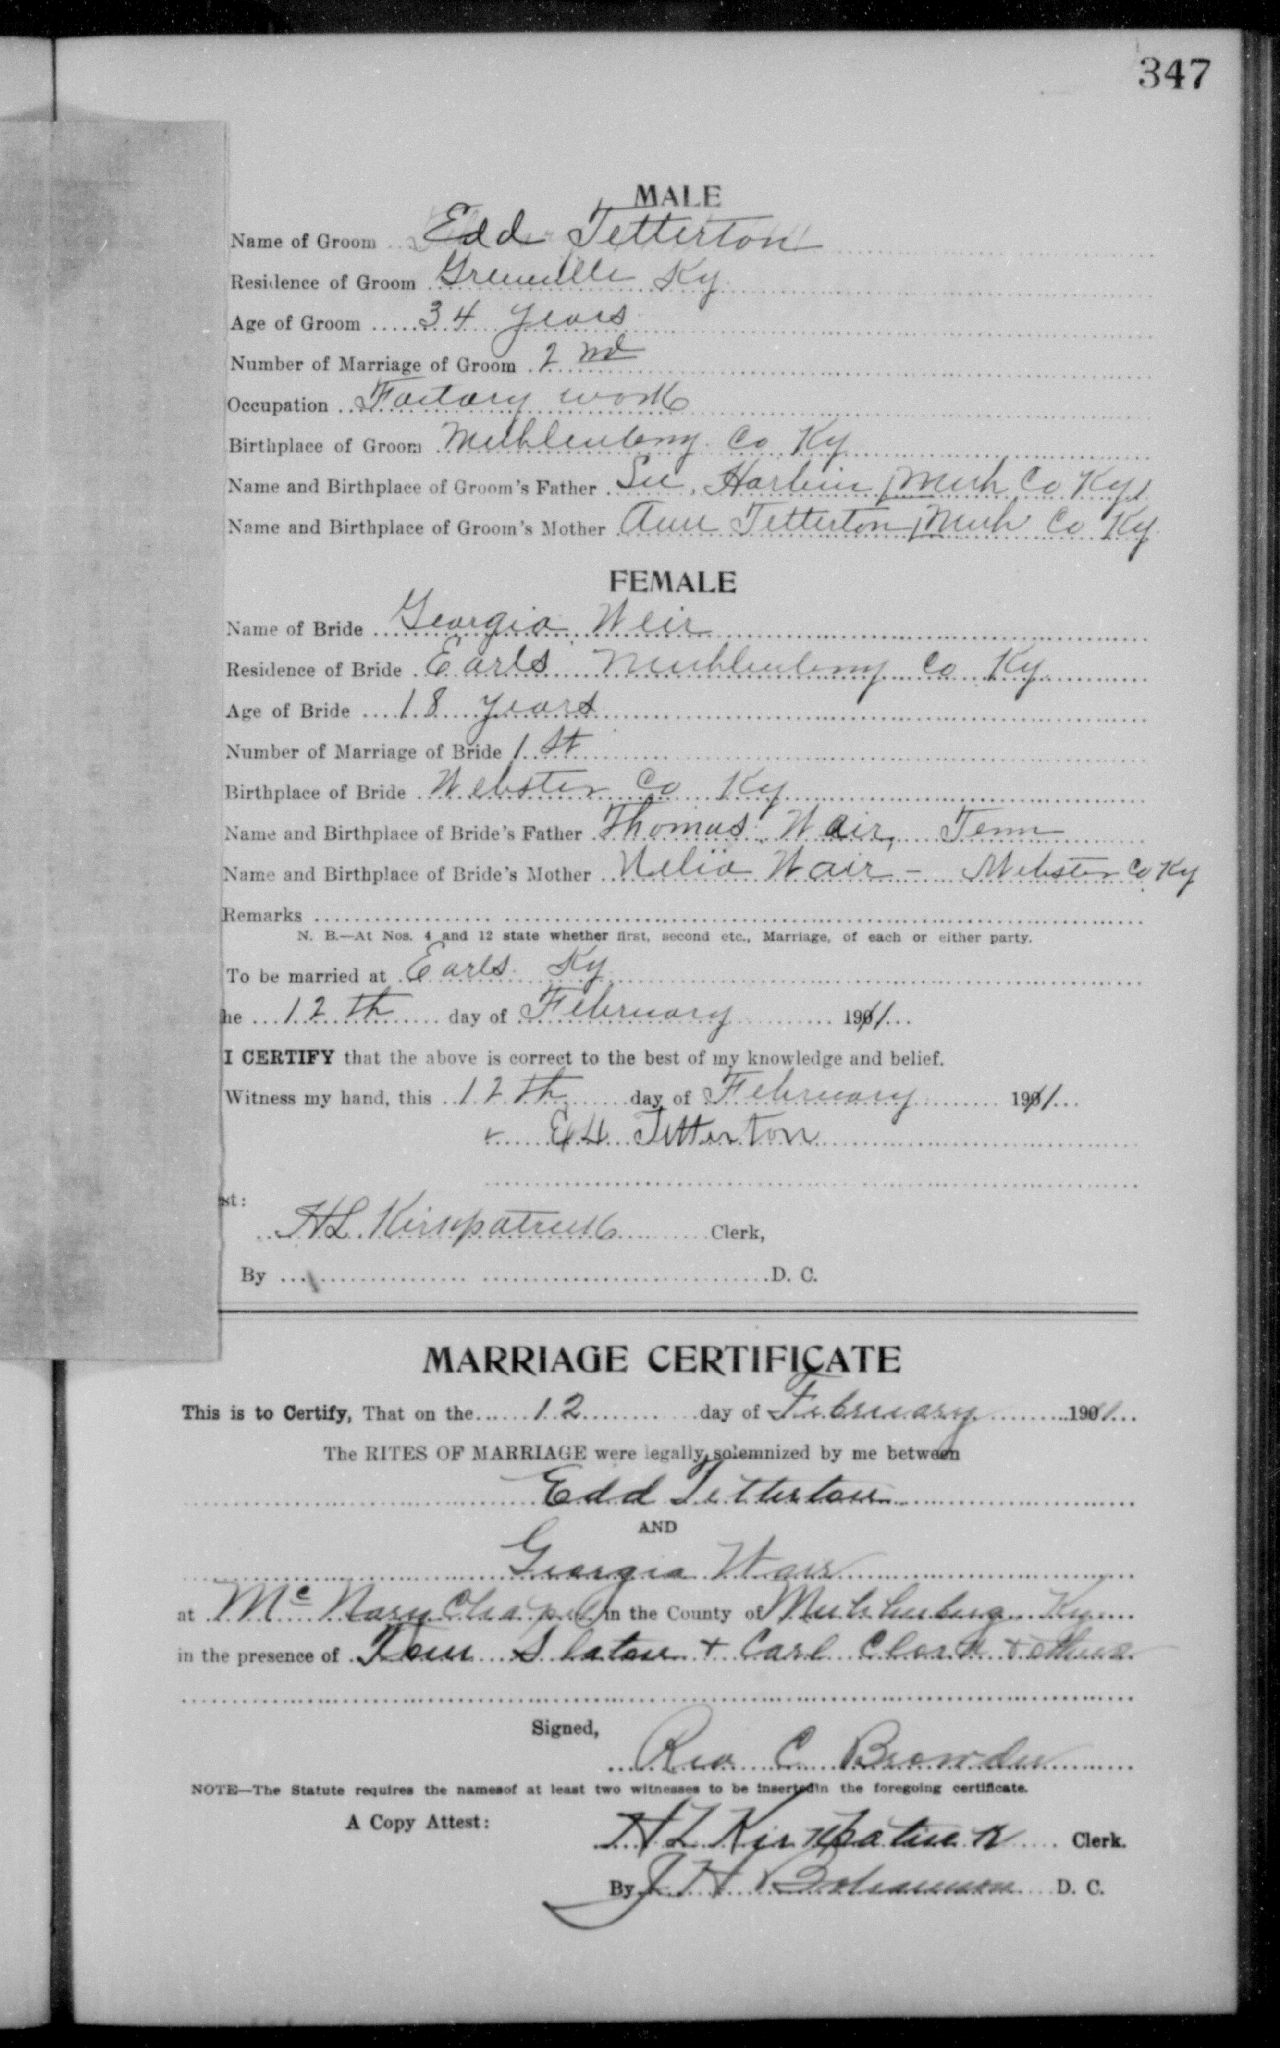 347
MALE
Name of Groom Edd Tetterton
Residence of Groom Greenville Ky
Age of Groom 34 years
Number of Marriage of Groom 2nd
Occupation Factory work
Birthplace of Groom Muhlenberg Co Ky
Name and Birthplace of Groom's Father Harbin Muh Co Ky
Name and Birthplace of Groom's Mother Ann Tetterton Muh Co Ky
FEMALE
Name of Bride Georgia Weir
Residence of Bride Earls Muhlenberg Co Ky
Age of Bride 18 years
Number of Marriage of Bride 1st
Birthplace of Bride Webster Co Ky
Name and Birthplace of Bride's Father Thomas Wair, Tenn
Name and Birthplace of Bride's Mother Nelia Wair - Webster Co Ky
Remarks
N. B.—At Nos. 4 and 12 state whether first, second etc., Marriage, of each or either party.
To be married at Earls Ky
he 12th day of February 1911
I CERTIFY that the above is correct to the best of my knowledge and belief.
Witness my hand, this 12th day of February 1911
Ed Tetterton
st:
HL Kirkpatrick Clerk,
By D. C.
MARRIAGE CERTIFICATE
This is to Certify, That on the 12 day of February 1911
The RITES OF MARRIAGE were legally solemnized by me between
Edd Tetterton
AND
Georgia Wair
at McNary Chapel in the County of Muhlenberg Ky
in the presence of Tom Slaton + Carl Clark + others
Signed,
Rev C Browder
NOTE—The Statute requires the namesof at least two witnesses to be insertedin the foregoing certificate.
A Copy Attest:
H L Kirkpatrick Clerk.
By J H Bohannon D. C.